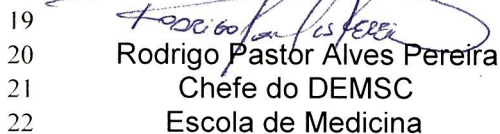 19
20 Rodrigo Pastor Alves Pereira
21 Chefe do DEMSC
22 Escola de Medicina